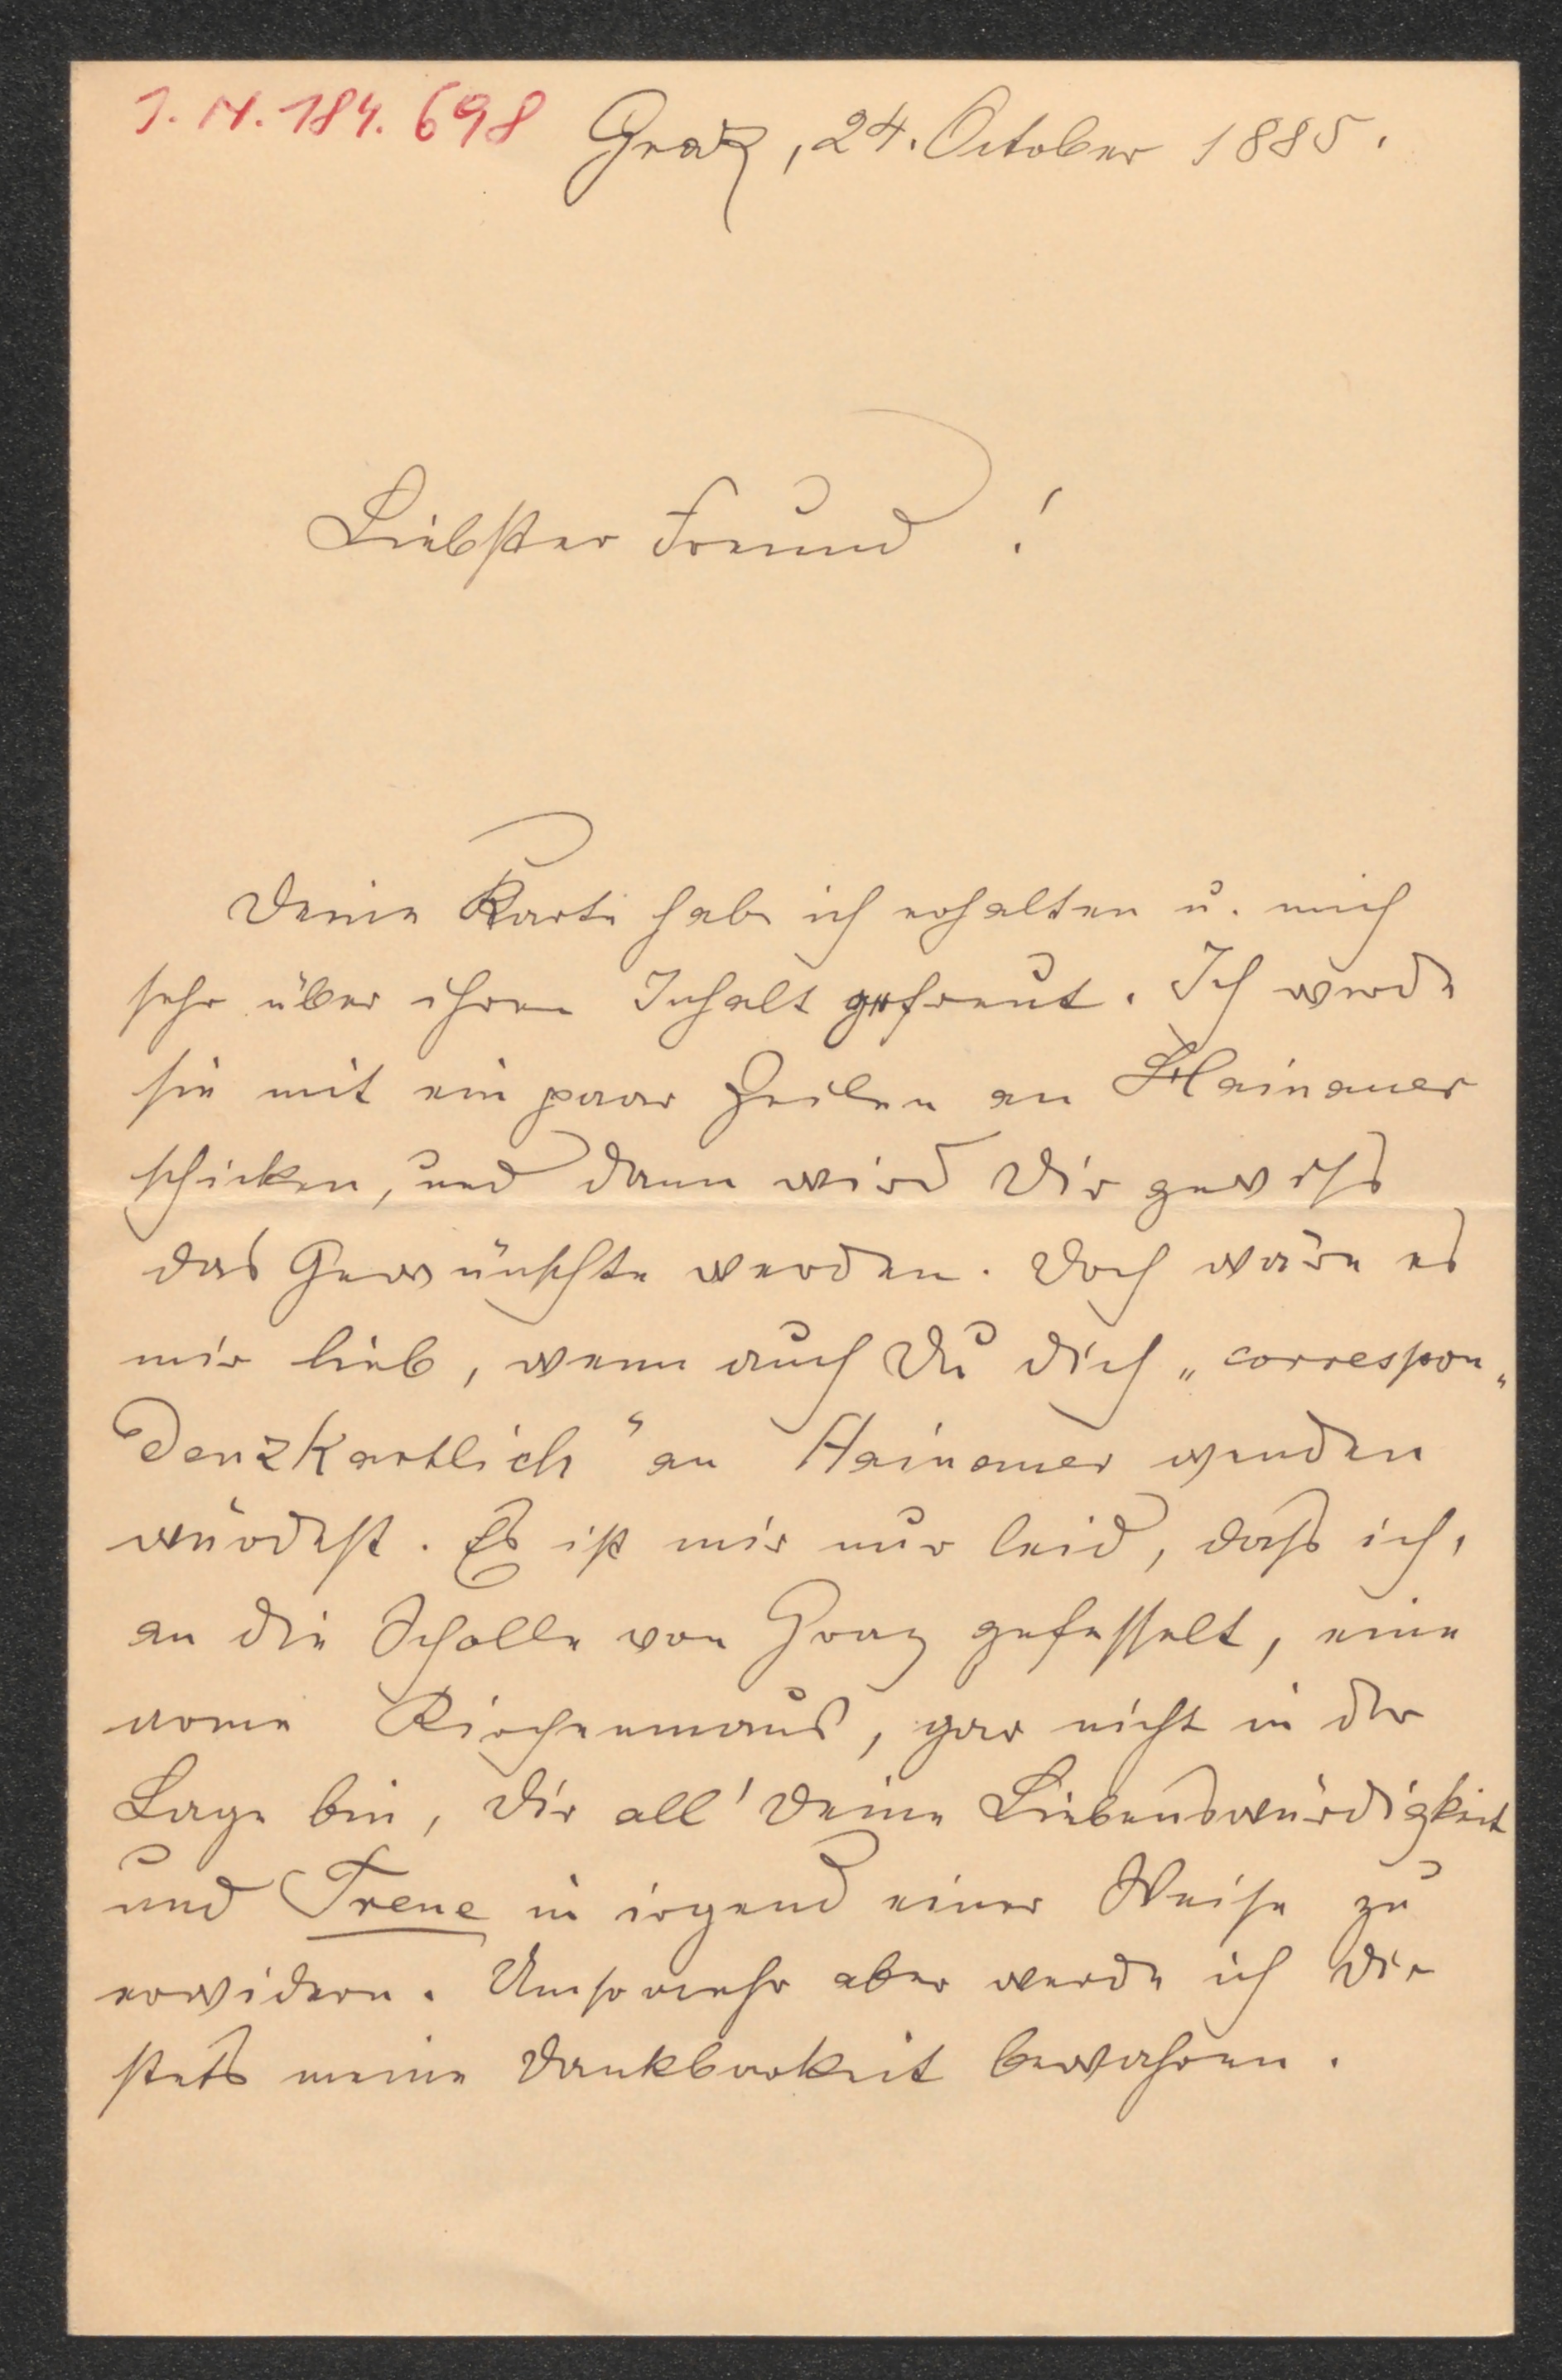 I. N. 184.698
Graz, 24. October 1885.
Liebster Freund!
Deine Karte habe ich erhalten u. mich
sehr über ihren Inhalt gefreut. Ich werde
sie mit ein paar Zeilen an Hainauer
schicken, und dann wird Dir gewiss
das Gewünschte werden. Doch wäre es
mir lieb, wenn auch Du dich „correspon„
denzkartlich“ an Hainauer wenden
würdest. Es ist mir nur leid, dass ich,
an die Scholle von Graz gefesselt, eine
arme Kirchenmaus, gar nicht in der
Lage bin, Dir all' Deine Liebenswürdigkeit
und Treue in irgend einer Weise zu
erwidern. Umsomehr aber werde ich Dir
stets meine Dankbarkeit bewahren.